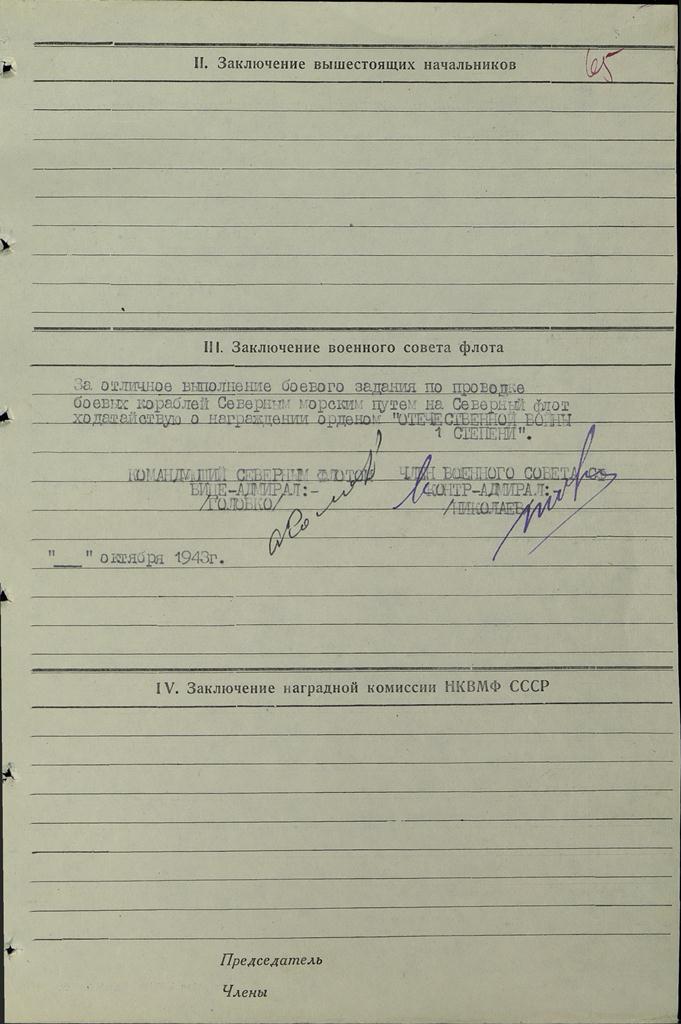 65
II. Заключение вышестоящих начальников
III. Заключение военного совета флота
За отличное выполнение боевого задания по проводке
боевых кораблей Северным морским путем на Северный флот
ходатайствую о награждении орденом "ОТЕЧЕСТВЕННОЙ ВОЙНЫ
1 СТЕПЕНИ".
КОМАНДУЮЩИЙ СЕВЕРНЫМ ФЛОТОМ ЧЛЕН ВОЕННОГО СОВЕТА СФ
ВИЦЕ-АДМИРАЛ:- КОНТР-АДМИРАЛ:
/ГОЛОВКО/ /НИКОЛАЕВ/
"__" октября 1943г.
IV. Заключение наградной комиссии НКВМФ СССР
Председатель
Члены